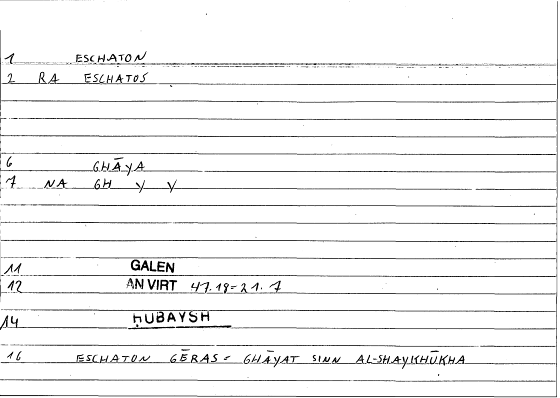 1 ESCHATON
2 RA ESCHATOS
6 GHĀYA
7 NA GH Y Y
11 GALEN
12 AN VIRT 47.19=21.7
14 ḤUBAYSH
16 ESCHATON GĒRAS = GHĀYAT SINN AL-SHAYKHŪKHA